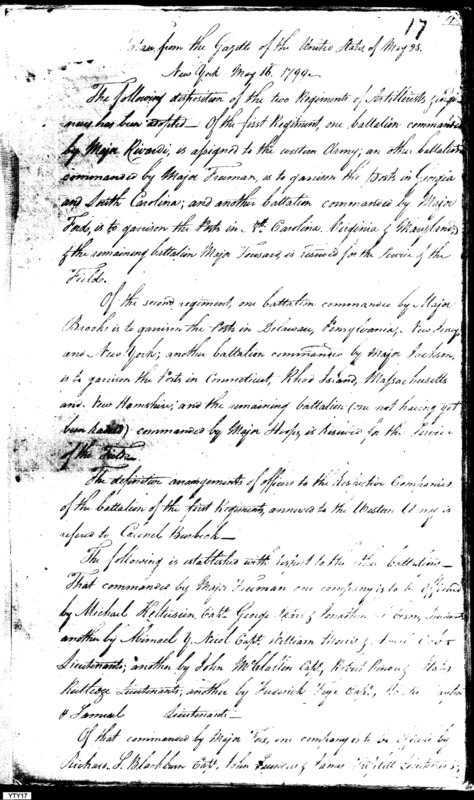 17
from the Gazette of the United States of May 25.
New York May 16. 1799.
The following disposition of the two Regiments of Artillerists &
neers has been adopted – Of the first Regiment, one battalion commanded
by Major Rivardi, is assigned to the western Army; an other battalion
commanded by Major Freeman, is to garrison the Posts in Georgia
and South Carolina; and another battalion commanded by Major
Ford, is to garrison the Posts in Nth. Carolina, Virginia & Maryland,
& the remaining battalion Major Tousard, is reserved for the Service of the
Field.
Of the second regiment, one battalion commanded by Major
Brooks is to garrison the Posts in Delaware, Pennsylvania, New Jersey
and New York; another battalion commanded by Major Jackson,
is to garrison the Posts in Connecticut, Rhod Island, Massachusetts
and New Hamshire; and the remaining battalion (one not having yet
been raised) commanded by Major Hoops, is Reserved for the Service
of the Field.
The definitive arrangements of officers to the Companies
of the battalion of the first Regiments, annexed to the Western Army is
refered to Colonel Burbeck –
The following is established with respect to the other battalions –
That commanded by Major Freeman one company is to be Officered
by Michael Kaltersien, Capt. George &
another by Capt. William &
Lieutenants; another by John McClallen Capt, Robert &
Rutledge Lieutenants; another by Frederick Frye Capt,
& Samuel Lieutenants –
Of that commanded by Major Ford, one company is to be Officered by
Richard S. Blackburn Capt. John & James Lieutenants,
YTY17